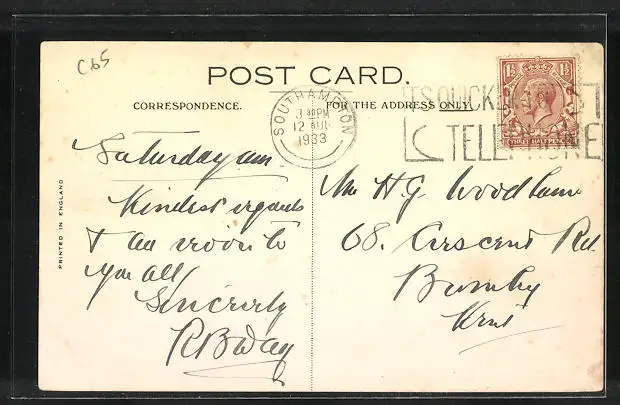 C65
POST CARD.
CORRESPONDENCE.
FOR THE ADDRESS ONLY
SOUTHAMPTON
3 30PM
12 AUG
1933
ITS QUICKER TO
TELEPHONE
1½ 1½
THREE HALFPENCE
PRINTED IN ENGLAND
Saturday am.
Kindest regards
& au revoir to
you all
Sincerely
RBWay
H.G.
68. Crescent Rd.
Kent